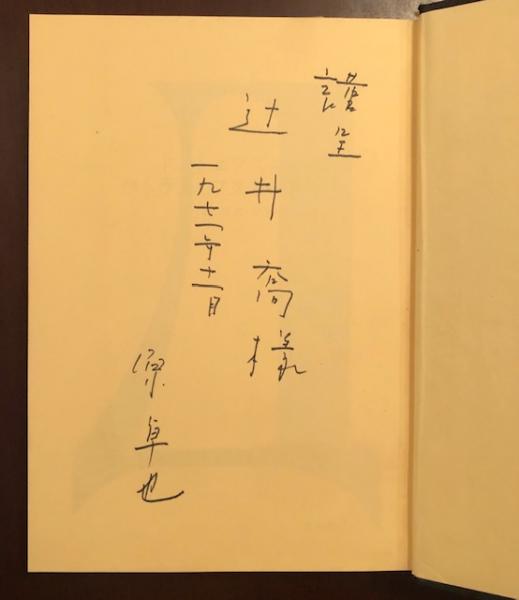 謹呈
辻井喬様
一九七一年十一月
原卓也